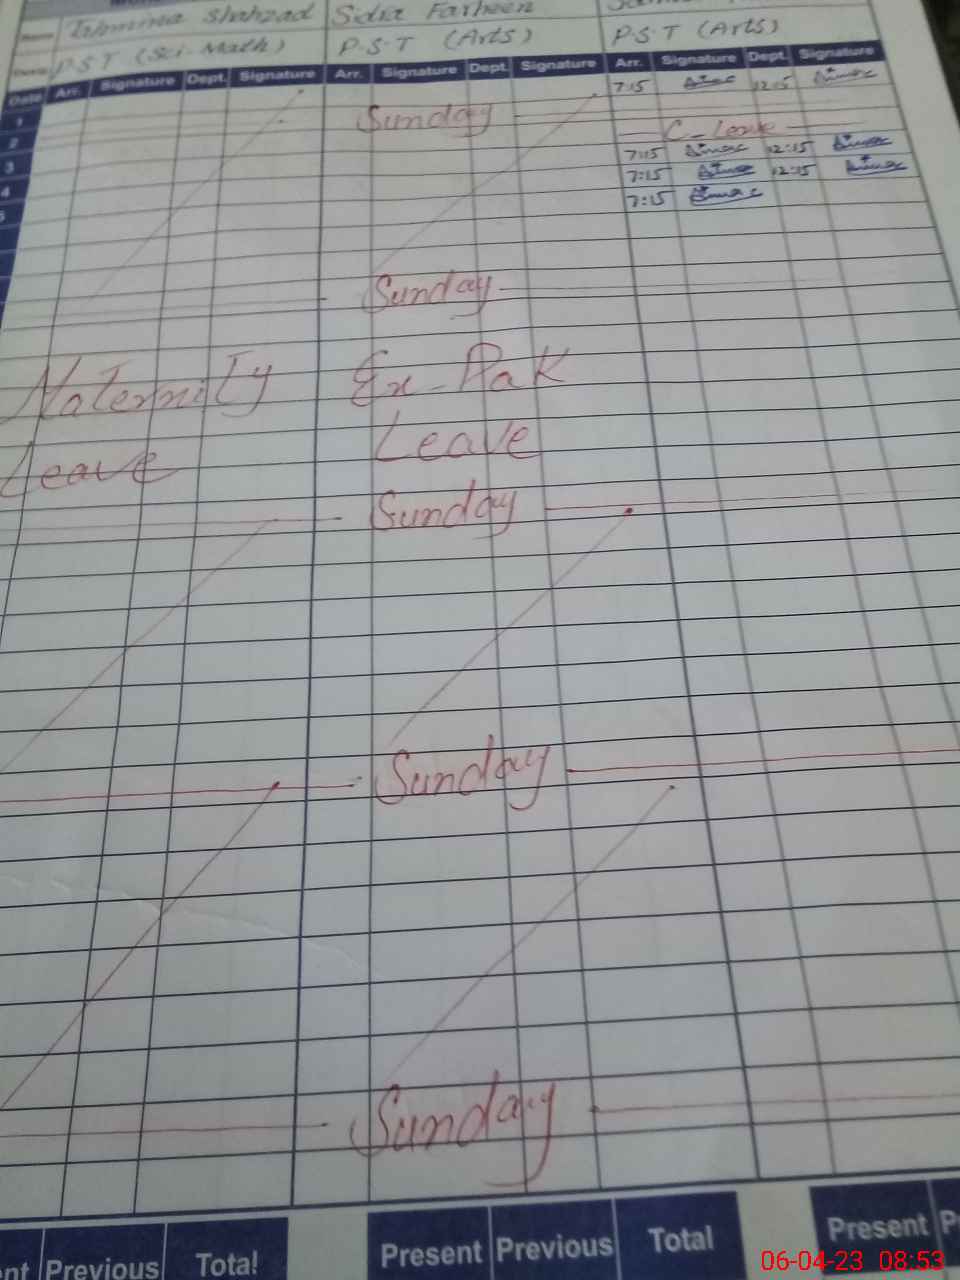 Shahzad Sidia Farheen
P.S.T (Sci-Math) P.S.T (Arts) P.S.T (Arts)
Date Arr. Signature Dept. Signature Arr. Signature Dept. Signature Arr. Signature Dept. Signature
7:15 12:15
1 Sunday
2 C-Leave
3 7:15 12:15
4 7:15 12:15
5 7:15
Sunday
Maternity Ex-Pak
Leave Leave
Sunday
Sunday
Sunday
Previous Total Present Previous Total Present
06-04-23 08:53